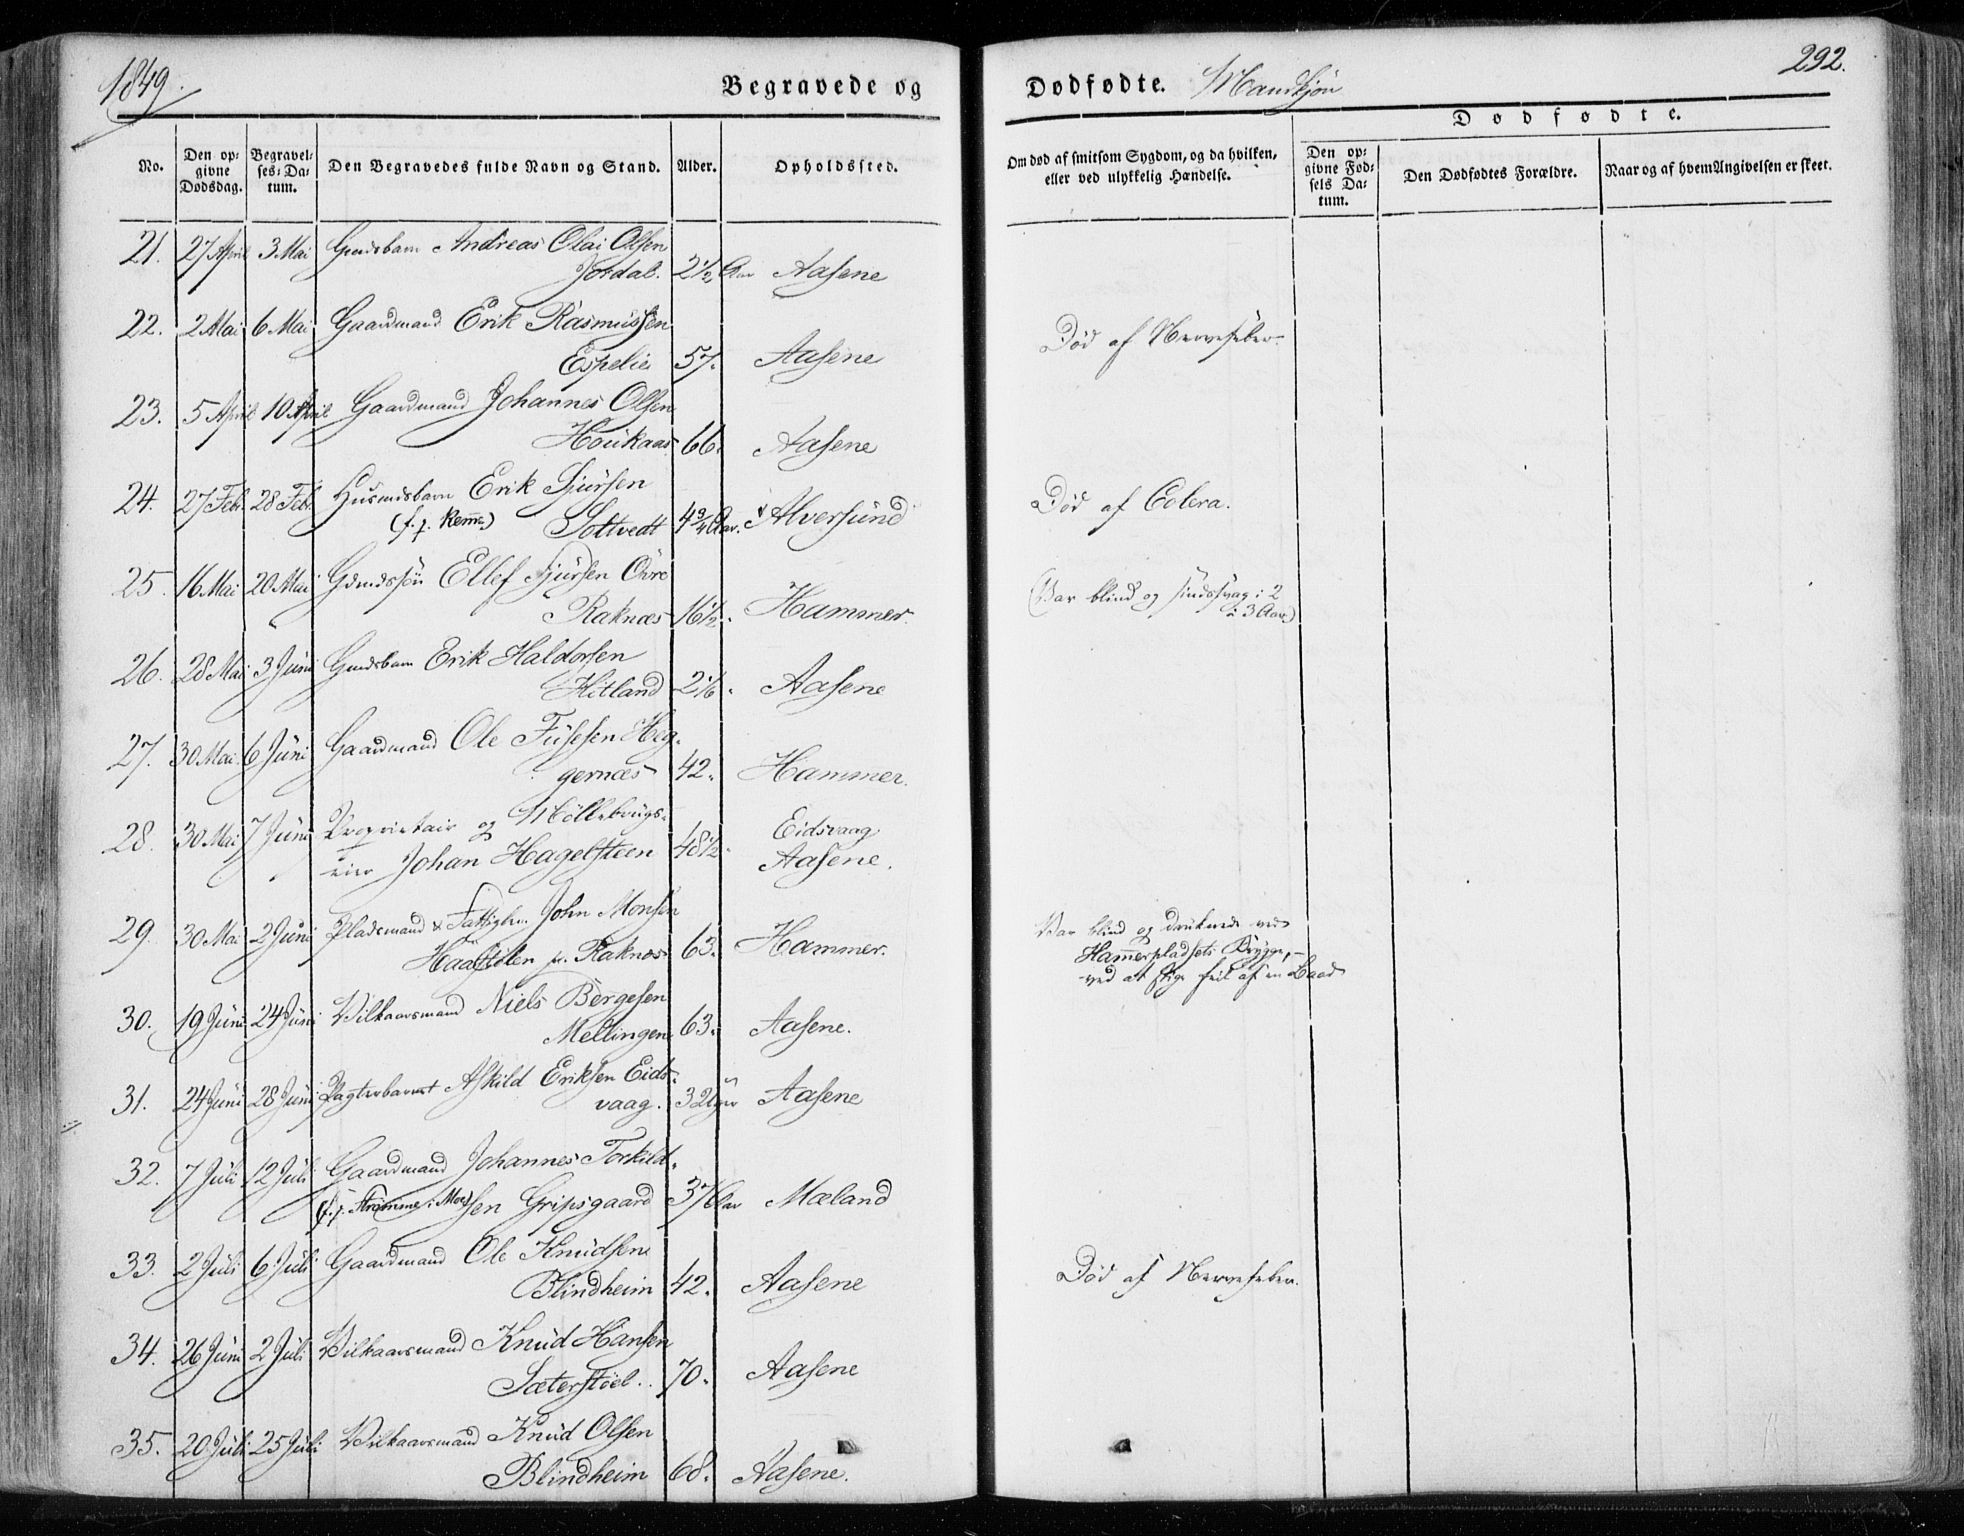 1849.
Begravede og
Dødfødte. Mandkjön
292.
No.
Den opgivne Dødsdag.
Begravelses-Datum.
Den Begravedes fulde Navn og Stand.
Alder.
Opholdssted.
Om død af smitsom Sygdom, og da hvilken, eller ved ulykkelig Hændelse.
Dødfødte.
Den opgivne Fødsels Datum.
Den Dødfødtes Forældre.
Naar og af hvem Angivelsen er skeet.
21. 27 April 3 Mai Gmdsbarn Andreas Olai Olsen
Jordal. 2 1/2 Aar Aasene
22. 2 Mai 6 Mai Gaardmand Erik Rasmussen
Espelie 57. Aasene Död af Nervefeber.
23. 5 April 10 April Gaardmand Johannes Olsen
Houkaas 66. Aasene
24. 27 Febr. 28 Febr. Husmdsbarn Erik Sjursen
(f. p. Remme) Soltvedt 4 3/4 Aar. Alversund Död af Colera.
25. 16 Mai 20 Mai Gdmdssön Ellef Sjursen Övre
Raknæs 16 1/2. Hammer. (Var blind og sindssvag i 2
à 3 Aar)
26. 28 Mai 3 Juni Gmdsbarn Erik Haldorsen
Hitland 2 1/6. Aasene
27. 30 Mai 6 Juni Gaardmand Ole Fusesen Heg-
gernæs 42. Hammer.
28. 30 Mai 7 Juni Proprietair og Möllebrugs-
eier Johan Hagelsteen 48 1/2. Eidsvaag
Aasene.
29. 30 Mai 2 Juni Pladsmand & Fattiglem John Monsen
Haastölen p. Raknæs 63. Hammer. Var blind og druknede ved
Hammerpladsets Brygge,
ved at stige feil af en Baad
30. 19 Juni 24 Juni Vilkaarsmand Niels Börgesen
Mellingen 63. Aasene.
31. 24 Juni 28 Juni Pagterbarnet Askild Eriksen Eids-
vaag. 3 Uger Aasene
32. 7 Juli 12 Juli Gaardmand Johannes Torkild-
(f. p. Strömme i Moe) sen Gripsgaard 37 Aar Mæland
33. 2 Juli 6 Juli Gaardmand Ole Knudsen
Blindheim 42. Aasene Död af Nervefeber.
34. 26 Juni 2 Juli Vilkaarsmand Knud Hansen
Sæterstöl. 70. Aasene
35. 20 Juli 25 Juli Vilkaarsmand Knud Olsen
Blindheim 68. Aasene.